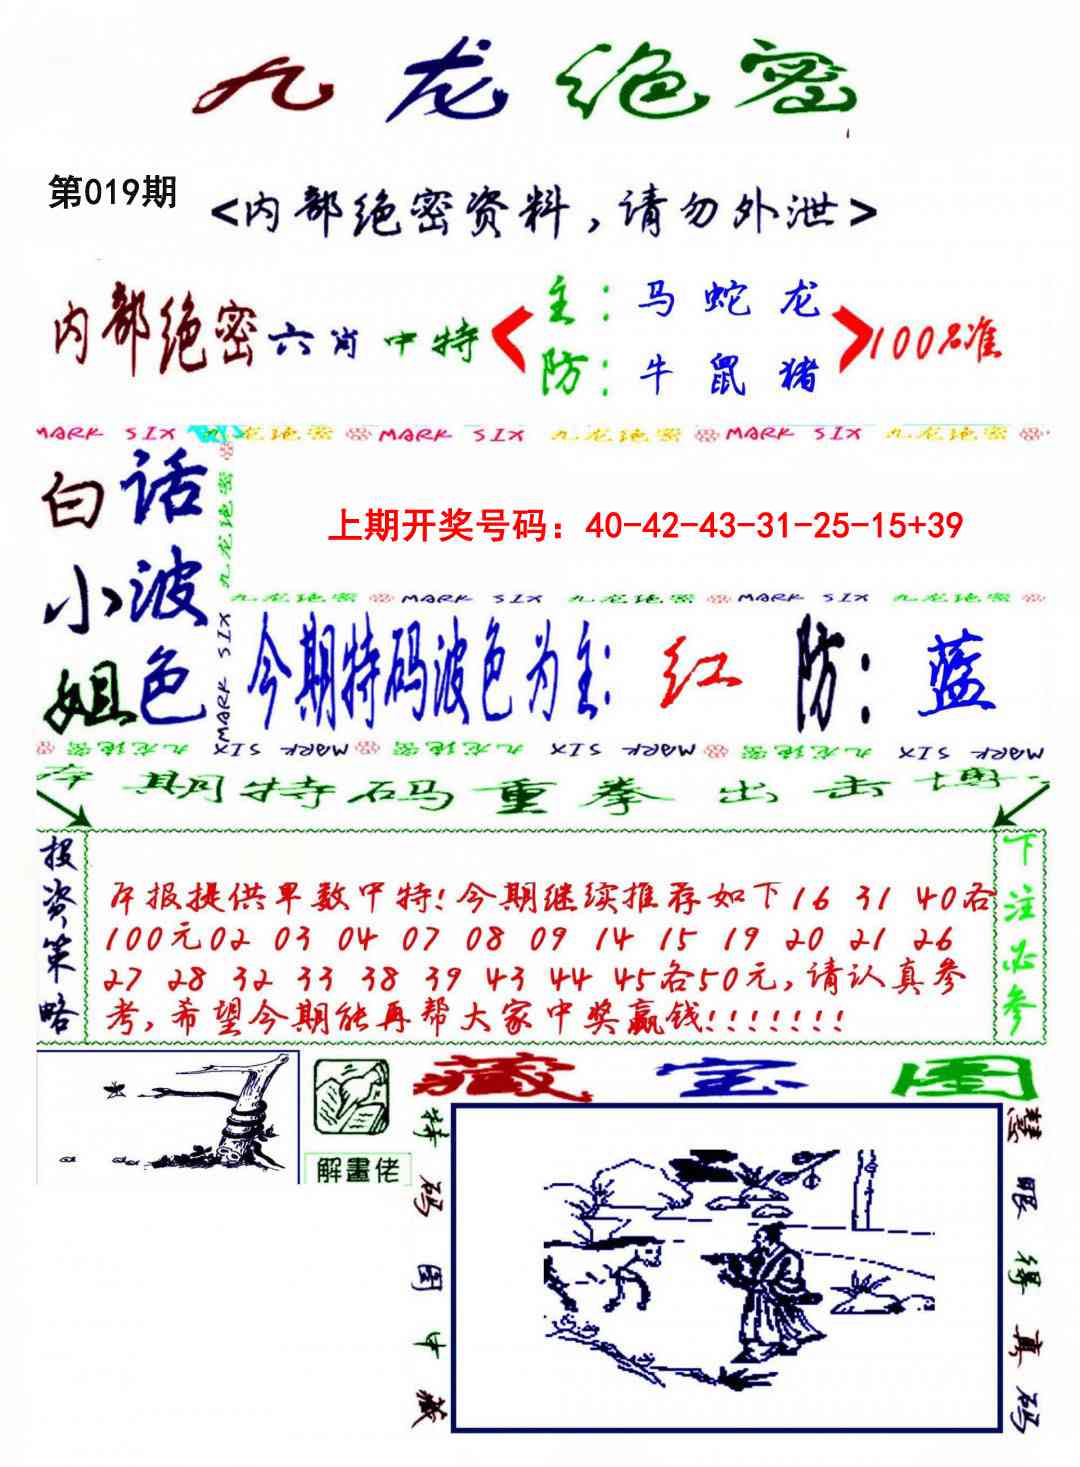 九龙绝密
第019期
<内部绝密资料，请勿外泄>
内部绝密六肖中特
主：马 蛇 龙
防：牛 鼠 猪
100%准
MARK SIX 九龙绝密 MARK SIX 九龙绝密 MARK SIX 九龙绝密
九龙绝密
MARK SIX
白小姐
话波色
上期开奖号码：40-42-43-31-25-15+39
九龙绝密 MARK SIX 九龙绝密 MARK SIX 九龙绝密
今期特码波色为主：红 防：蓝
九龙绝密 MARK SIX 九龙绝密 MARK SIX 九龙绝密 MARK SIX
本期特码重拳出击博
投资策略
本报提供单数中特！今期继续推荐如下16 31 40各
100元02 03 04 07 08 09 14 15 19 20 21 26
27 28 32 33 38 39 43 44 45各50元，请认真参
考，希望今期能再帮大家中奖赢钱！！！！！！！
下注必参
解畫佬
藏宝图
特码图中藏
慧眼得真码